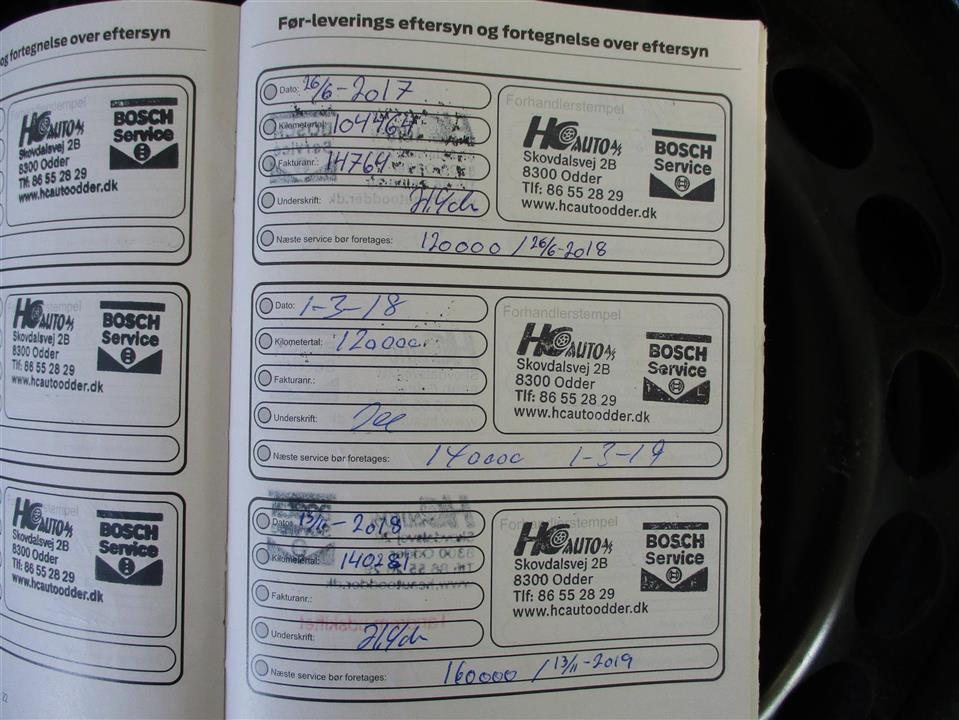 og fortegnelse over eftersyn
Forhandlerstempel
HC AUTO A/S
Skovdalsvej 2B
8300 Odder
Tlf: 86 55 28 29
www.hcautoodder.dk
BOSCH
Service
HC AUTO A/S
Skovdalsvej 2B
8300 Odder
Tlf: 86 55 28 29
www.hcautoodder.dk
BOSCH
Service
HC AUTO A/S
Skovdalsvej 2B
8300 Odder
Tlf: 86 55 28 29
www.hcautoodder.dk
BOSCH
Service
22
Før-leverings eftersyn og fortegnelse over eftersyn
Dato: 26/6-2017
Kilometertal: 104464
Fakturanr.: 14764
Underskrift:
Næste service bør foretages: 120000 / 26/6-2018
Forhandlerstempel
HC AUTO A/S
Skovdalsvej 2B
8300 Odder
Tlf: 86 55 28 29
www.hcautoodder.dk
BOSCH
Service
Dato: 1-3-18
Kilometertal: 120000
Fakturanr.:
Underskrift:
Næste service bør foretages: 140000 1-3-19
Forhandlerstempel
HC AUTO A/S
Skovdalsvej 2B
8300 Odder
Tlf: 86 55 28 29
www.hcautoodder.dk
BOSCH
Service
Dato: 13/11-2018
Kilometertal: 140281
Fakturanr.:
Underskrift:
Næste service bør foretages: 160000 / 13/11-2019
Forhandlerstempel
HC AUTO A/S
Skovdalsvej 2B
8300 Odder
Tlf: 86 55 28 29
www.hcautoodder.dk
BOSCH
Service